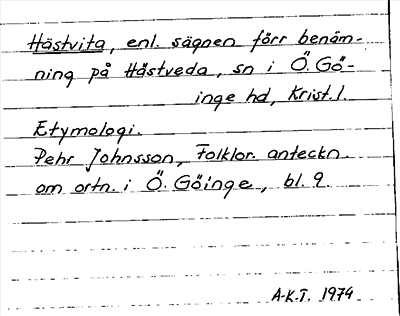 Hästvita, enl. sägnen förr benäm-
ning på Hästveda, sn i Ö. Gö-
inge hd, Krist. l.
Etymologi.
Pehr Johnsson, Folklor. anteckn.
om ortn. i Ö. Göinge, bl. 9.
A-K.T. 1974